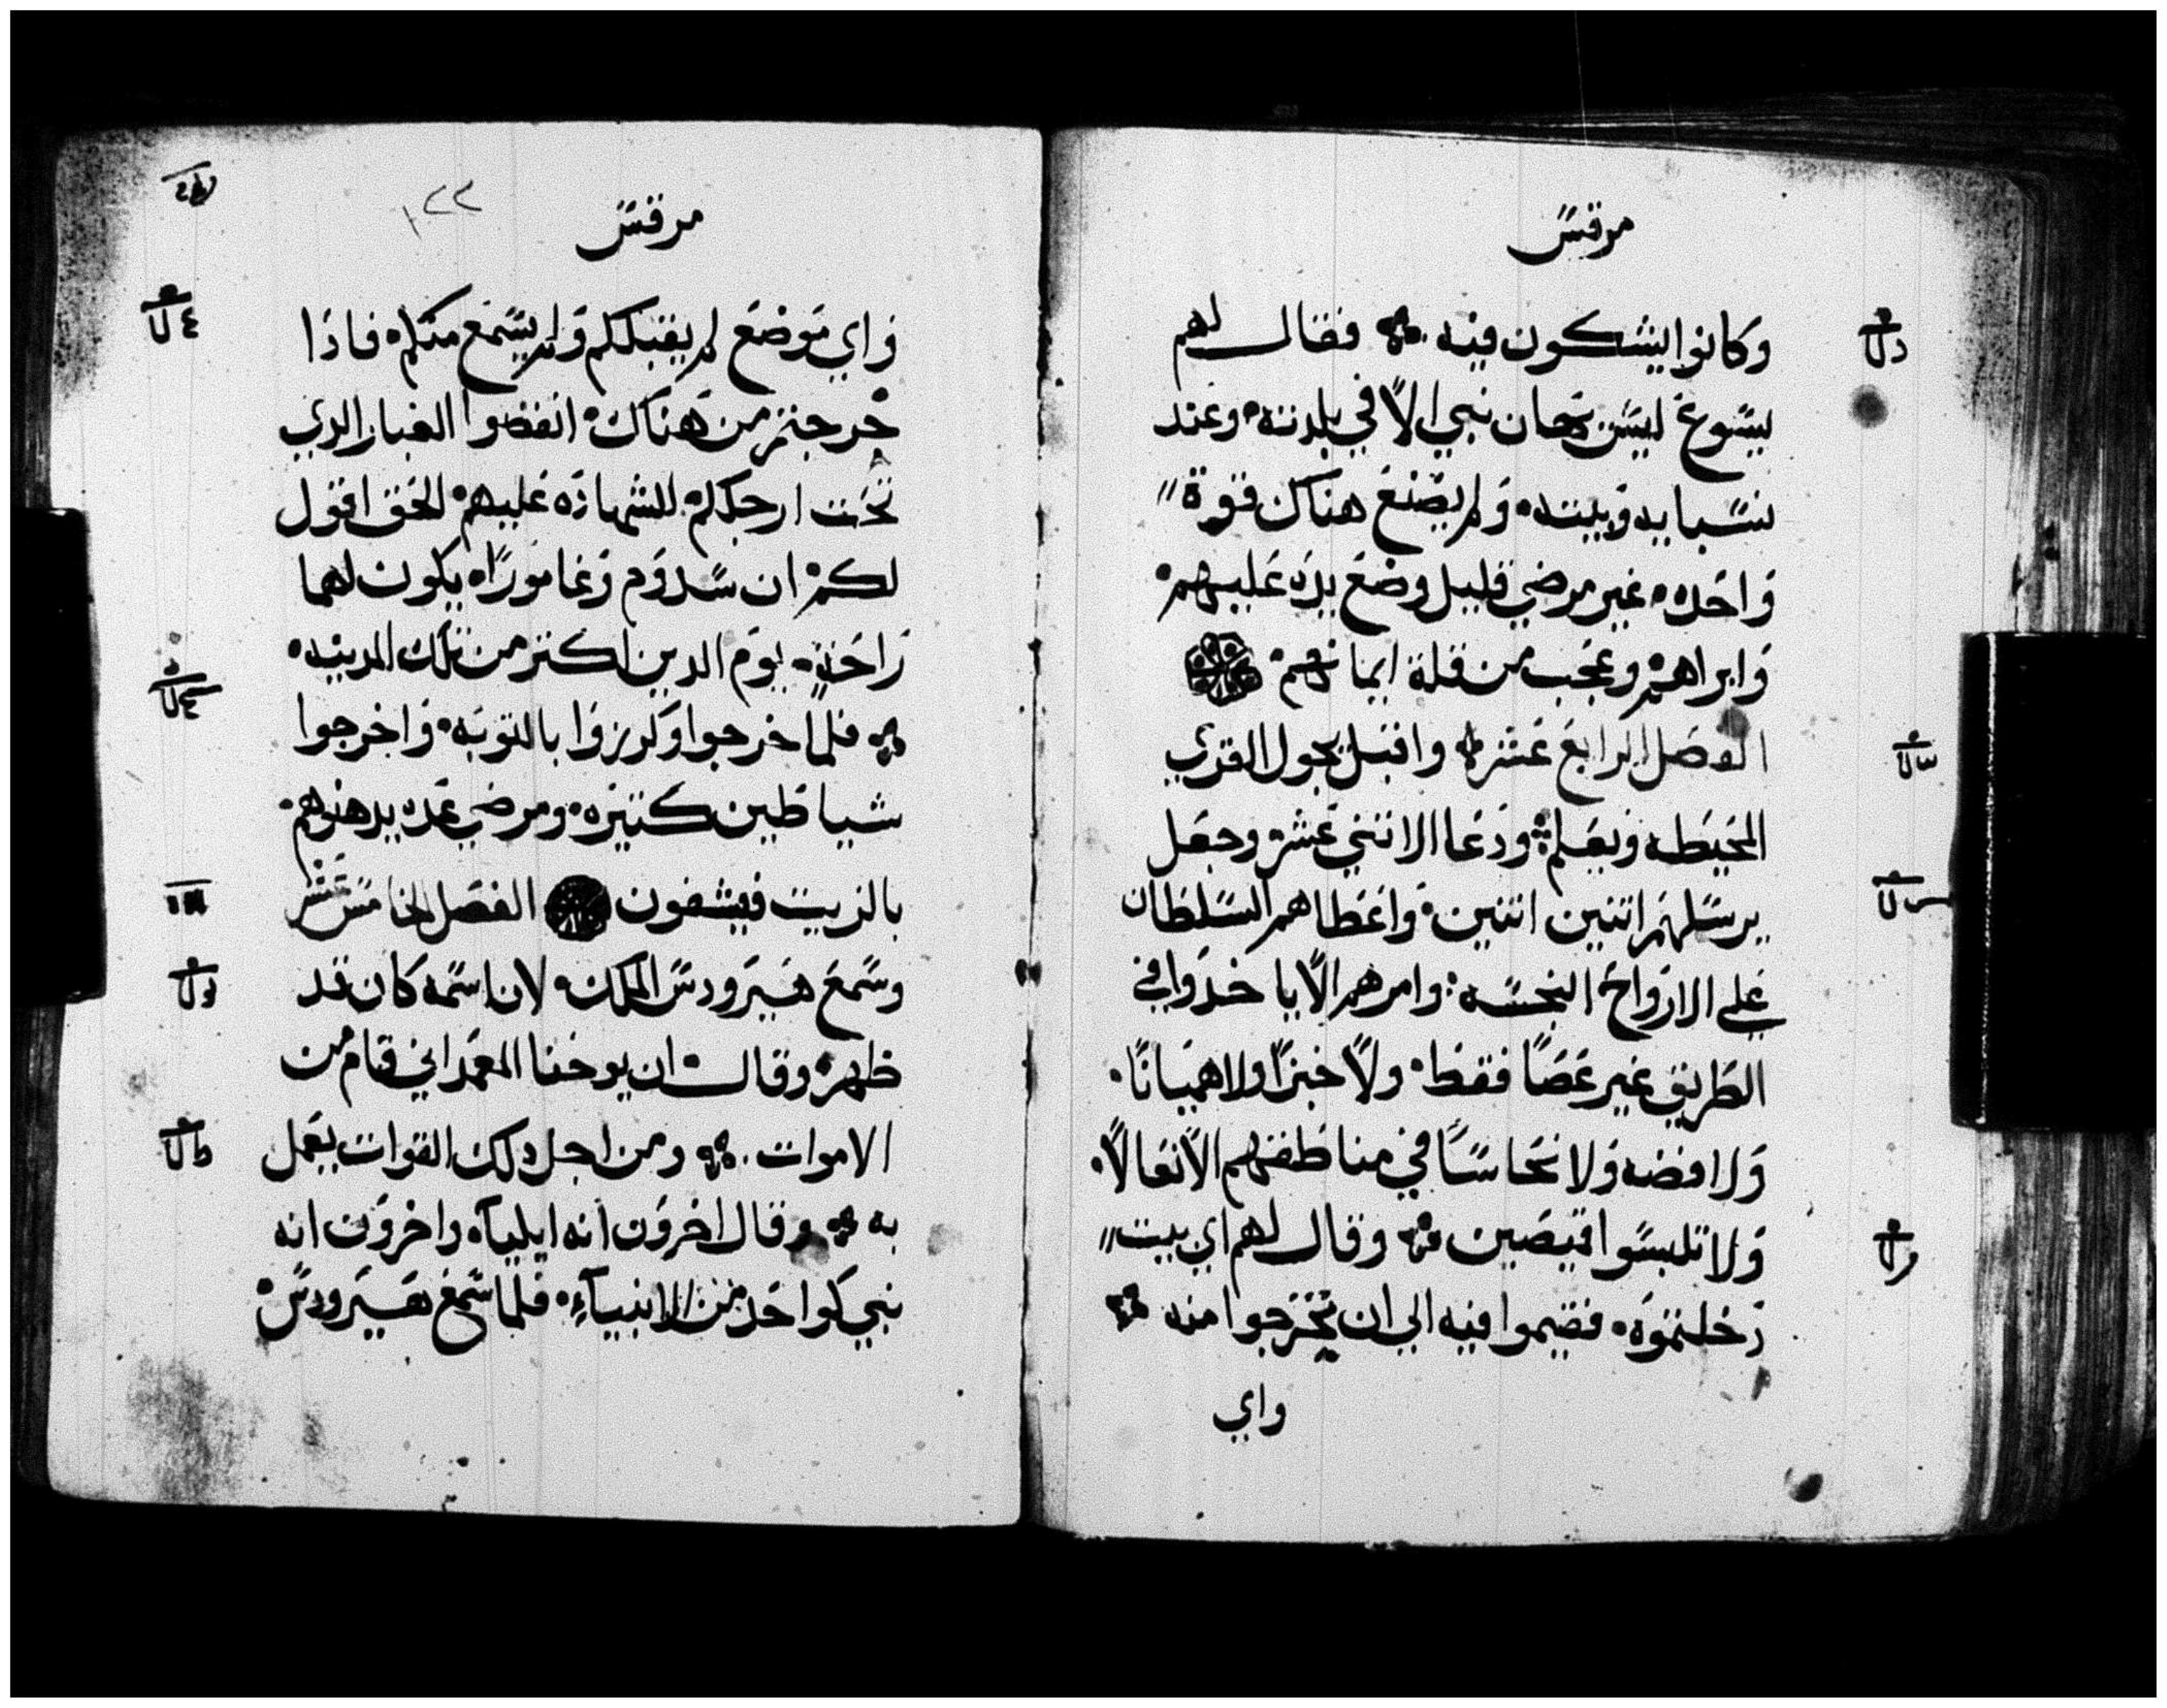 مرقس
وكانوا يشكون فيه فقال لهم
يسوع ليس يهان نبي الا في بلدته وعند
نسبايه وبيته ولم يصنع هناك قوة
واحده غير مرضي قليل وضع يده عليهم
وابراهم وعجب من قلة ايمانهم
الفصل الرابع عشر واقبل يجول القري
المحيطه ويعلم ودعا الاثني عشر وجعل
يرسلهم اثنين اثنين واعطاهم السلطان
علي الارواح النجسه وامرهم الا ياخدوا في
الطريق غير عصا فقط ولا خبزا ولا هميانا
ولا فضه ولا نحاسا في مناطقهم الا نعالا
ولا تلبسوا قميصين وقال لهم اي بيت
دخلتموه فقيموا فيه الي ان تخرجوا منه
واي
مرقس
١٢٢
واي موضع لم يقبلكم ولم يسمع منكم فادا
خرجتم من هناك انفضوا الغبار الدي
تحت ارجلكم للشهاده عليهم الحق اقول
لكم ان سدوم وغامورا يكون لهما
راحة يوم الدين اكتر من تلك المدينه
فلما خرجوا وكرزوا بالتوبه واخرجوا
شياطين كتيره ومرضي عده يدهنوهم
بالزيت فيشفون الفصل الخامس عشر
وسمع هيرودس الملك لان اسمه كان قد
ظهر وقال ان يوحنا المعمداني قام من
الاموات ومن اجل دلك القوات يعمل
به وقال اخرون انه ايلياه واخرون انه
نبي كواحد من الانبيآء فلما سمع هيرودس